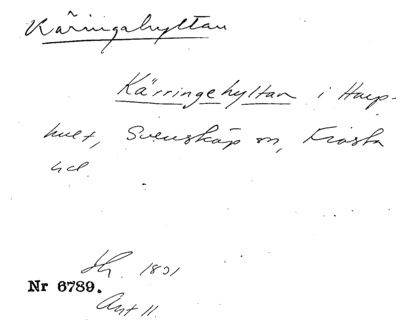 Käringahyltan
Kärringehyltan i Harp-
hult, Svensköp sn, Frosta
hd.
1831
Nr 6789.
Avt 11.